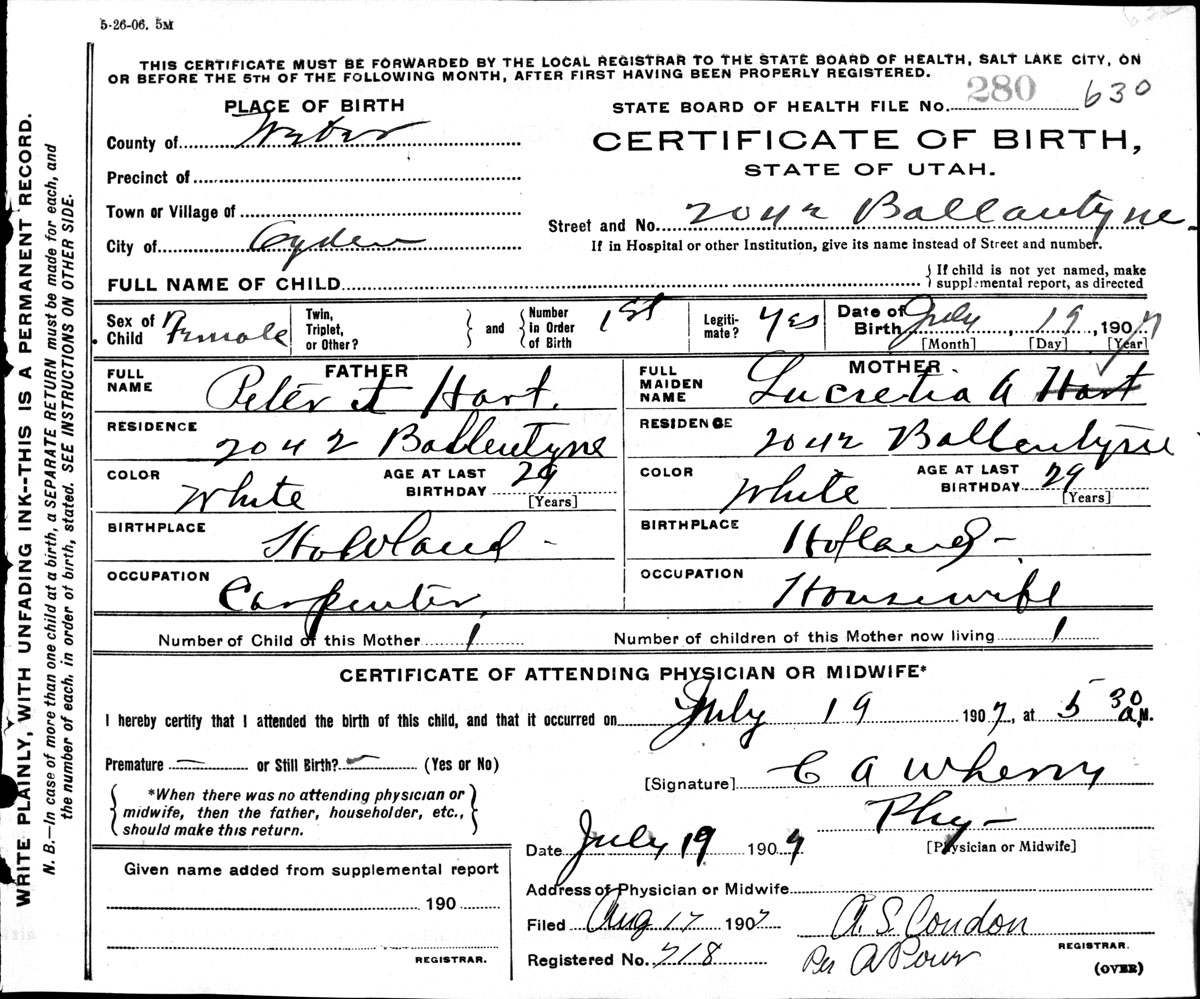 5-26-06. 5M
THIS CERTIFICATE MUST BE FORWARDED BY THE LOCAL REGISTRAR TO THE STATE BOARD OF HEALTH, SALT LAKE CITY, ON
OR BEFORE THE 5TH OF THE FOLLOWING MONTH, AFTER FIRST HAVING BEEN PROPERLY REGISTERED.
PLACE OF BIRTH
STATE BOARD OF HEALTH FILE No. 280 630
County of Weber
CERTIFICATE OF BIRTH,
STATE OF UTAH.
Precinct of
Town or Village of
Street and No. 2042 Ballantyne
City of Ogden
If in Hospital or other Institution, give its name instead of Street and number.
FULL NAME OF CHILD
If child is not yet named, make
supplemental report, as directed
Sex of Child Female
Twin, Triplet, or Other?
and
Number in Order of Birth 1st
Legiti-mate? Yes
Date of Birth July, 19, 1907
[Month] [Day] [Year]
FATHER
FULL NAME Peter J Hart.
RESIDENCE 2042 Ballentyne
COLOR White AGE AT LAST BIRTHDAY 29 [Years]
BIRTHPLACE Holland -
OCCUPATION Carpenter
MOTHER
FULL MAIDEN NAME Lucretia A Hart
RESIDENCE 2042 Ballentyne
COLOR White AGE AT LAST BIRTHDAY 29 [Years]
BIRTHPLACE Holland -
OCCUPATION Housewife
Number of Child of this Mother 1 Number of children of this Mother now living 1
CERTIFICATE OF ATTENDING PHYSICIAN OR MIDWIFE*
I hereby certify that I attended the birth of this child, and that it occurred on July 19 1907, at 5 30 a.M.
Premature — or Still Birth? — (Yes or No)
[Signature] C A Wherry
*When there was no attending physician or
midwife, then the father, householder, etc.,
should make this return.
Phy -
[Physician or Midwife]
Date July 19 1907
Given name added from supplemental report
190
REGISTRAR.
Address of Physician or Midwife
Filed Aug 17 1907 A. S. Condon
REGISTRAR.
Registered No. 718 Per A
(OVER)
WRITE PLAINLY, WITH UNFADING INK--THIS IS A PERMANENT RECORD.
N. B.—In case of more than one child at a birth, a SEPARATE RETURN must be made for each, and
the number of each, in order of birth, stated. SEE INSTRUCTIONS ON OTHER SIDE.